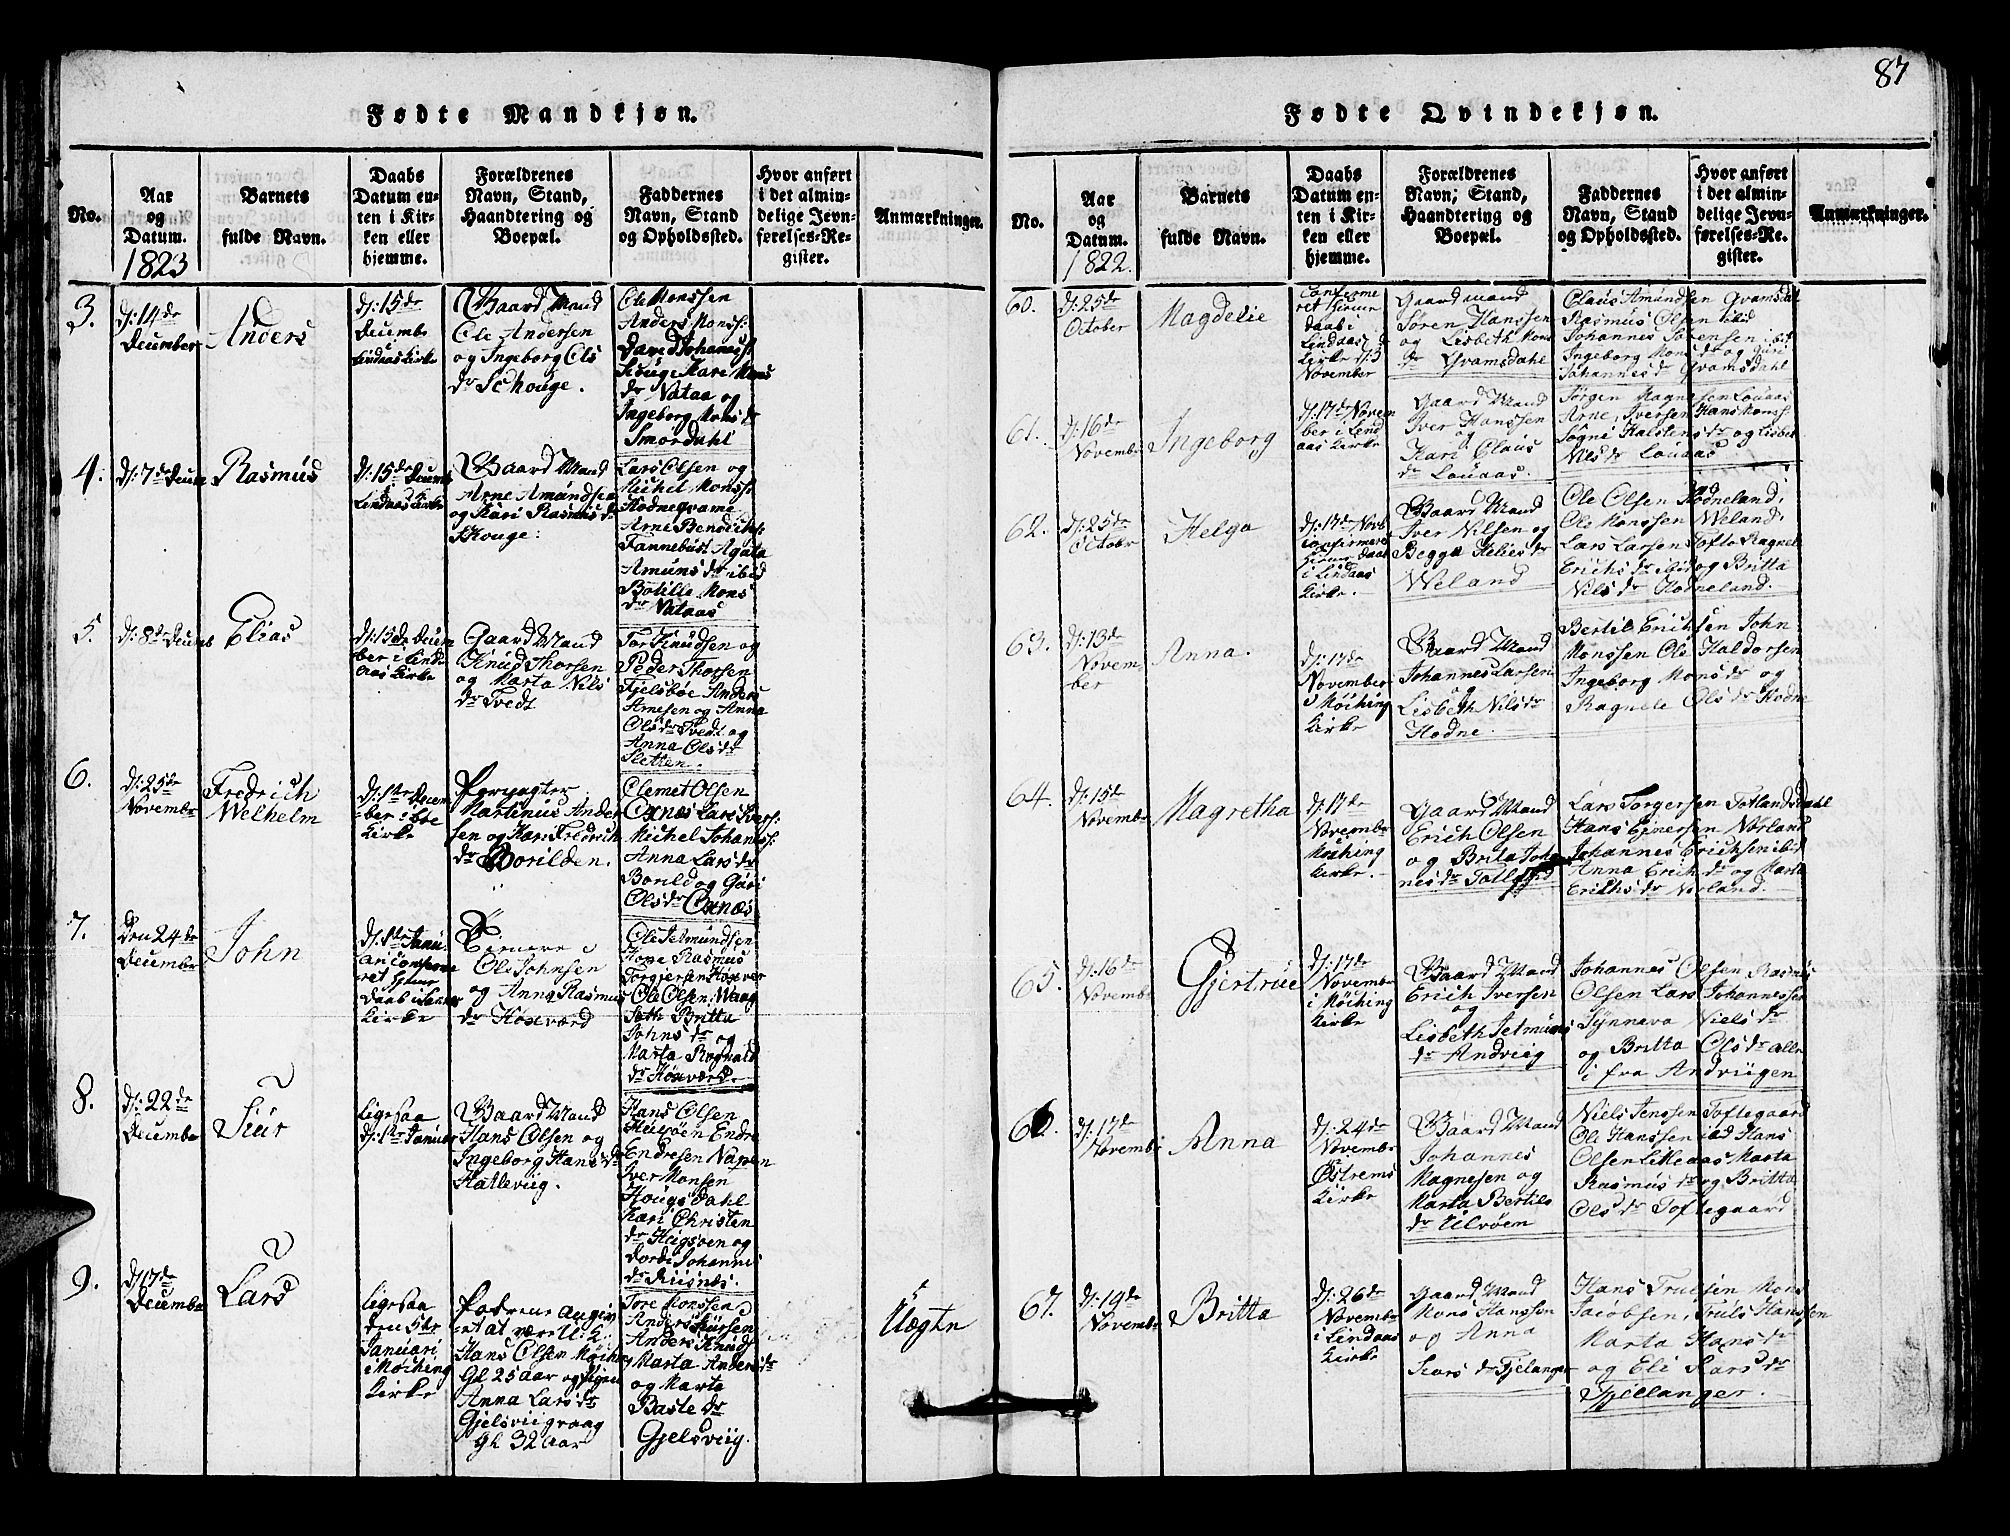 87
Fødte Mandkjøn.
No.
Aar
og
Datum.
1823
Barnets
fulde Navn.
Daabs
Datum en-
ten i Kir-
ken eller
hjemme.
Forældrenes
Navn, Stand,
Haandtering og
Boepæl.
Faddernes
Navn, Stand
og Opholdssted.
Hvor anført
i det almin-
delige Jevn-
førelses-Re-
gister.
Anmærkninger.
3.
D: 14de
December
Anders
D: 15de
Decembr
Lindaas Kirke
Gaard Mand
Ole Andersen
og Ingeborg Ols
dr Schouge.
Ole Monssen
Anders Monss:
David Johaness:
Schouge Kari Mons
dr Nataa og
Ingeborg Mons dr
Smørdahl
4.
D: 7de Decmbr
Rasmus
D: 15de Decemb
Lindaas Kirke
Gaard Mand
Arne Amundsen
og Kari Rasmus dr
Skouge:
Lars Olsen og
Michel Monss:
Hodneqvame
Arne Bendichs:
Fannebust Agata
Amuns dr ibid
Botille Mons
dr Nataas
5.
D: 8de Decmb
Elias
D: 15de Decem
ber i Lind
aas Kirke
Gaard Mand
Knud Thorsen
og Marta Nils
dr Tvedt
Tor Knudsen og
Peder Thorsen
Fjelsbøe Anders
Arnesen og Anna
Ols dr Tvedt og
Anna Ols dr
Sletten.
6.
D: 25de
Novembr
Fredrich
Welhelm
D: 1ste Decem
ber i Boe
Kirke
Martinus Ander
sen og Kari Fredrich
dr Borilden.
Clemet Olsen
Cxnæs Lars Ivers:
Michel Johaness:
Anna Lars dr
Borild og Guri
Ols dr Oxnæs
7.
Den 24de
Decembr
John
D: 1de Janu
ari Confirme
ret Hjeme
Daab i
Kirke
Ole Johnsen
og Anna Rasmus
dr Høxværd
Ole Jetmundsen
Hope Rasmus
Torgjersen Høxver
Ole Olsen Waag
Seth Britta
Johns dr og
Marta Rognald
dr Høxverd.
8.
D: 22de
Decembr
Siur
Ligesaa
D: 1te Januar
Gaard Mand
Hans Olsen og
Ingeborg Hans dr
Hatleviig.
Hans Olsen
Hilsøen Endre
Endresen Nappen
Iver Monsen
Hougs Dahl
Kari Christen
dr Heigsøen og
Dorde Johannis
dr Riisnes.
9.
D: 17de
Decembr
Lars
Ligesaa
Den 5te
Januari
i Møching
Kirke
Fadrene angiv
et at være U: K:
Hans Olsen Møching
Gl 25 aar og Pigen
Anna Lars dr
Gjelsviigvaag
Gl 32 aar
Tore Monssen
Anders Siursen
Anders Knuds
Marta Anders dr
og Marta
Baste dr
Gjelsviig.
Uægtn
Fødte Qvindekjøn.
No.
Aar
og
Datum.
1822.
Barnets
fulde Navn.
Daabs
Datum en-
ten i Kir-
ken eller
hjemme.
Forældrenes
Navn, Stand,
Haandtering og
Boepæl.
Faddernes
Navn, Stand
og Opholdssted.
Hvor anført
i det almin-
delige Jevn-
førelses-Re-
gister.
Anmærkninger.
60.
D: 25de
October
Magdelie
Confirme
ret Hieme
daab i
Lindaas
Kirke D: 3
November
Gaardmand
Søren Hanssen
og Lisbeth Mons
dr Qvamsdahl
Claus Amundsen Qvamsdal
Rasmus Olsen ibid
Johannes Sørensen ibid
Ingeborg Mons dr og Guri
Johannes dr Qvamsdahl
61.
D: 16de
Novembr
Ingeborg
D: 17de Novem
ber i Lind
aas Kirke
Gaard Mand
Iver Hanssen
og
Kari Claus
dr Louaas.
Jørgen Magnesen Louaas
Arne Iversen Hans Monss:
Søgni Halstens dr og Lisbet
Nils dr Louaas
62.
D: 25de
October
Helga
D: 17de Novb
Confirmeret
Hieme Daab
i Lindaas
Kirke.
Gaard Mand
Iver Nilsen og
Begga Helies dr
Weland
Ole Olsen Hodneland
Ole Monssen Weland.
Lars Larsen Tofte Ragnele
Erichs dr ibid og Britta
Nils dr Hodneland.
63.
D: 13de
Novem
ber
Anna.
D: 17de
November
i Møching
Kirke
Gaard Mand
Johannes Larsen
og
Lisbeth Nils dr
Hodne.
Bertil Erichsen John
Monssen Ole Haldorsen
Ingeborg Mons dr og
Ragnele Ols dr Hodne
64.
D: 15de
Novembr
Magretha
D: 17de
Novembr
Møching
Kirke.
Gaard Mand
Erich Olsen
og Brita Joha
nes dr Totland
Lars Torgersen Totlandsdahl
Hans Ejnersen Norland
Johannes Erichsen ibid
Anna Erich dr og Marta
Erichs dr Norland.
65.
D: 16de
Novembr
Gjertrue
D: 17de
Novembr
i Møching
Kirke
Gaard Mand
Erich Iversen
og
Lisbeth Jetmuns
dr Andviig
Johannes Olsen Rasmus
Olsen Lars Johannessen
Synnava Niels dr
og Britta Ols dr alle
i fra Andviigen
66.
D: 17de
Novembr
Anna
D: 24de
Novembr
Østrems
Kirke
Gaard Mand
Johannes
Magnesen og
Marta Bertils
dr Ulvøem
Niels Jenssen Toftegaard
Ole Hanssen ibid Hans
Olsen Litleaas Marta
Rasmus dr og Britta
Ols dr Toftegaard
67.
D: 19de
Novembr
Britta
D: 26de
Novembr
i Lindaas
Kirke
Gaard Mand
Mons Hanssen
og Anna
Siurs dr Fjelanger
Hans Truelsen Mons
Jacobsen, Truls Hanssen
Marta Hans dr
og Eli Lars dr
Fjellanger.